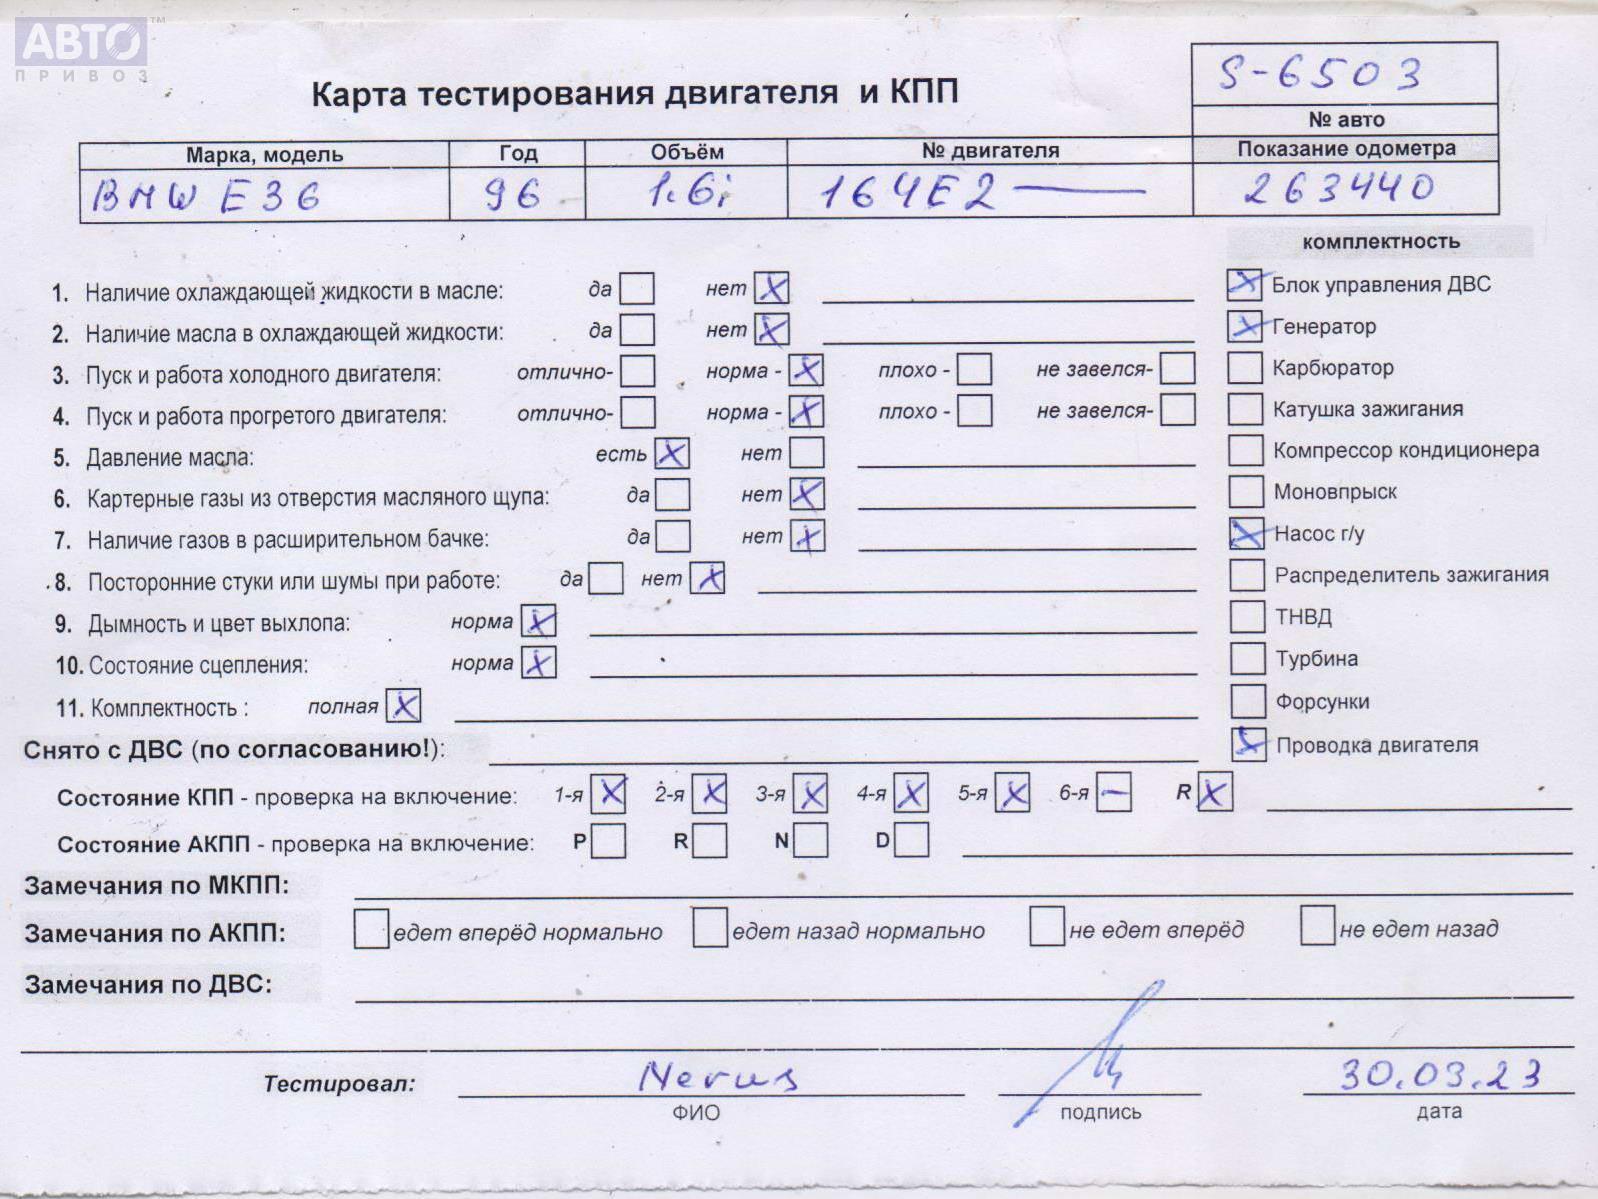 АВТО™
ПРИВОЗ
S-6503
Карта тестирования двигателя и КПП
№ авто
Марка, модель Год Объём № двигателя Показание одометра
BMW E36 96 1.6i 164E2 — 263440
комплектность
1. Наличие охлаждающей жидкости в масле: да нет X
X Блок управления ДВС
2. Наличие масла в охлаждающей жидкости: да нет X
X Генератор
3. Пуск и работа холодного двигателя: отлично- норма - X плохо - не завелся-
Карбюратор
4. Пуск и работа прогретого двигателя: отлично- норма - X плохо - не завелся-
Катушка зажигания
5. Давление масла: есть X нет
Компрессор кондиционера
6. Картерные газы из отверстия масляного щупа: да нет X
Моновпрыск
7. Наличие газов в расширительном бачке: да нет X
X Насос г/у
8. Посторонние стуки или шумы при работе: да нет X
Распределитель зажигания
9. Дымность и цвет выхлопа: норма X
ТНВД
10. Состояние сцепления: норма X
Турбина
11. Комплектность : полная X
Форсунки
Снято с ДВС (по согласованию!):
X Проводка двигателя
Состояние КПП - проверка на включение: 1-я X 2-я X 3-я X 4-я X 5-я X 6-я — R X
Состояние АКПП - проверка на включение: P R N D
Замечания по МКПП:
Замечания по АКПП: едет вперёд нормально едет назад нормально не едет вперёд не едет назад
Замечания по ДВС:
Тестировал: Nerus 30.03.23
ФИО подпись дата